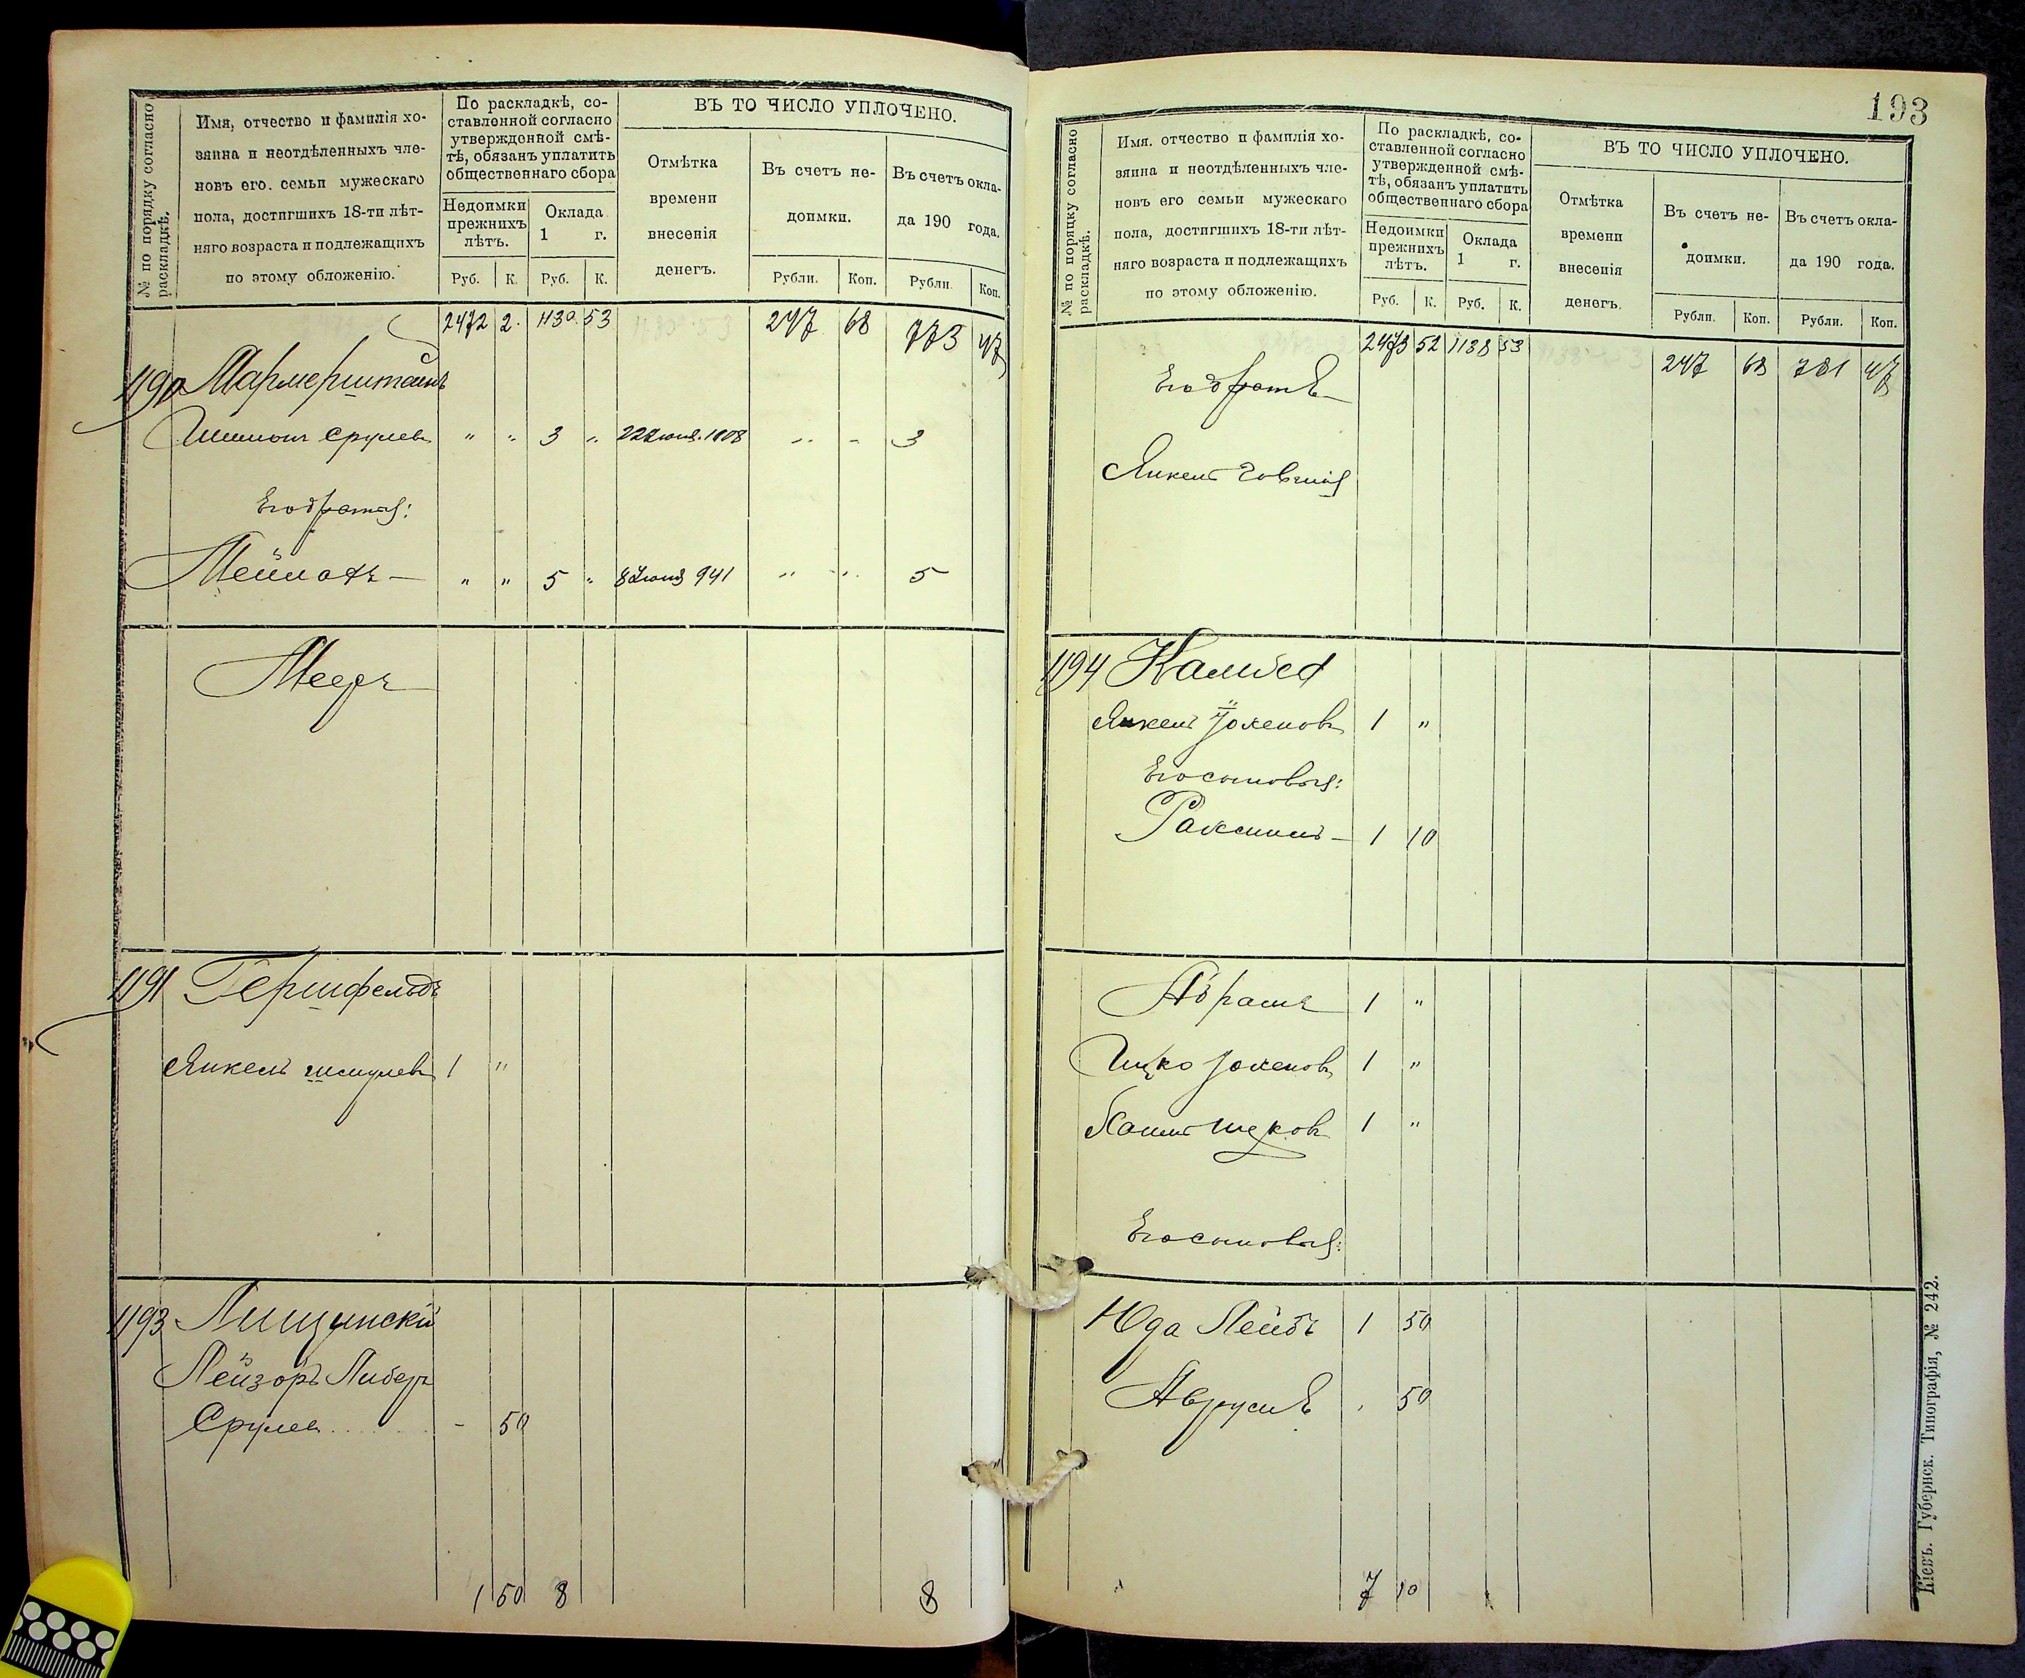 № по порядку согласно раскладкѣ.
Имя, отчество и фамилія хо-
зяина и неотдѣленныхъ чле-
новъ его. семьи мужескаго
пола, достигшихъ 18-ти лѣт-
няго возраста и подлежащихъ
по этому обложенію.
По раскладкѣ, со-
ставленной согласно
утвержденной смѣ-
тѣ, обязанъ уплатить
общественнаго сбора
Недоимки
прежнихъ
лѣтъ.
Оклада
1 г.
Руб. К. Руб. К.
ВЪ ТО ЧИСЛО УПЛОЧЕНО.
Отмѣтка
времени
внесенія
денегъ.
Въ счетъ не-
доимки.
Въ счетъ окла-
да 190 года.
Рубли. Коп. Рубли Коп.
2472 2. 1130. 53 247 68 773 47
1190 Мармерштейнъ
Шимонъ Срулев " " 3 " 22 Июня. 1908 " " 3
Его братья:
Мейлахъ — " " 5 " 8 Июня 941 " " 5
Мееръ
1191 Гершфельдъ
Янкель Шмулев 1 "
1193 Лищинскій
Лейзоръ Либеръ
Срулев - 50
1 50 8 8
193
№ по порядку согласно раскладкѣ.
Имя. отчество и фамилія хо-
зяина и неотдѣленныхъ чле-
новъ его семьи мужескаго
пола, достигшихъ 18-ти лѣт-
няго возраста и подлежащихъ
по этому обложенію.
По раскладкѣ, со-
ставленной согласно
утвержденной смѣ-
тѣ, обязанъ уплатить
общественнаго сбора
Недоимки
прежнихъ
лѣтъ.
Оклада
1 г.
Руб. К. Руб. К.
ВЪ ТО ЧИСЛО УПЛОЧЕНО.
Отмѣтка
времени
внесенія
денегъ.
Въ счетъ не-
доимки.
Въ счетъ окла-
да 190 года.
Рубли. Коп. Рубли. Коп.
2473 52 1138 53 247 68 781 47
Его братъ
Янкель
1194
Янкель 1 "
Его сыновья:
1 10
Абрамъ 1 "
Ицко 1 "
1 "
Его сыновья:
Юда Лейбъ 1 50
Аврумъ . 50
7 10
Кіевъ. Губернск. Типографія, № 242.